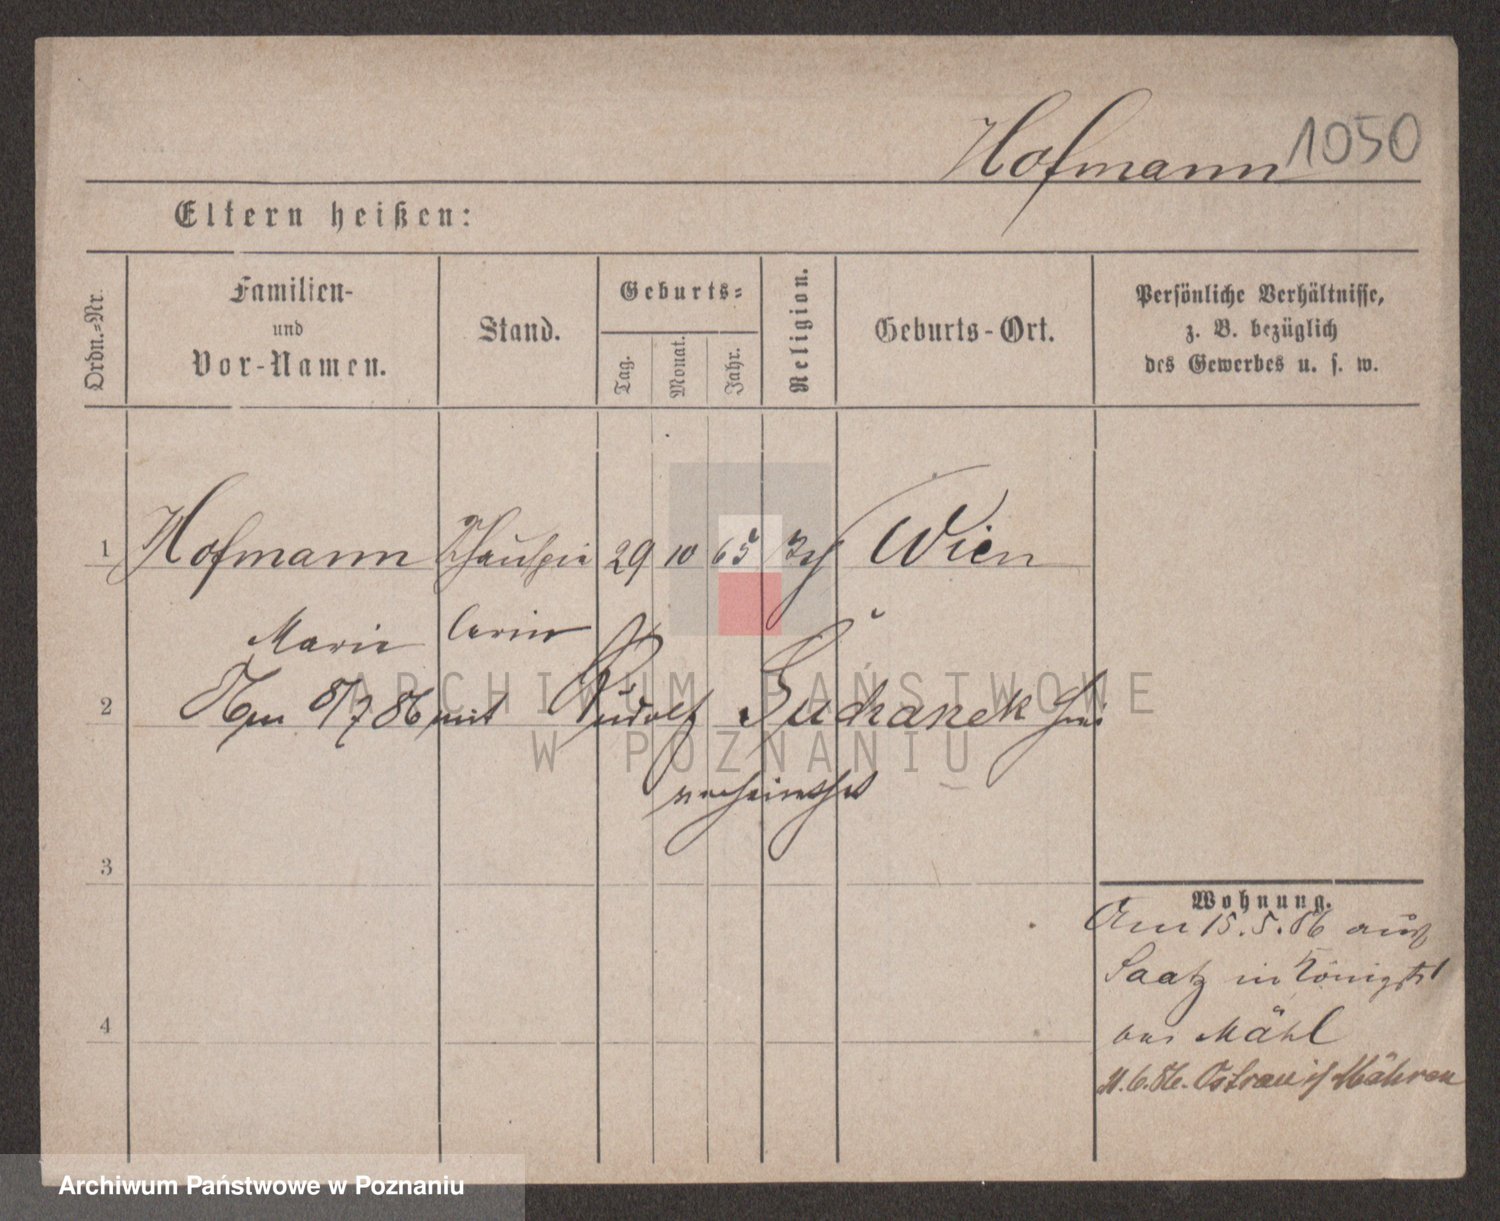 Hofmann 1050
Eltern heißen:
Ordn.=Nr.
Familien-
und
Vor-Namen.
Stand.
Geburts=
Tag.
Monat.
Jahr.
Religion.
Geburts-Ort.
Persönliche Verhältnisse,
z. B. bezüglich
des Gewerbes u. s. w.
1 Hofmann Schauspie 29 10 65 Wien
Marie lerin
2 Am 8/7 86 mit Rudolf
verheirathet
3
4
Wohnung.
Am 15.5.86 aus
Saatz in
aus
11.6.86. Ostrau i/ Mähren
ARCHIWUM PAŃSTWOWE
W POZNANIU
Archiwum Państwowe w Poznaniu